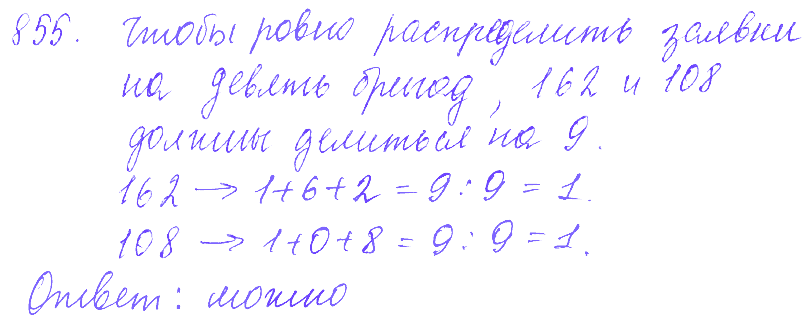 855. Чтобы ровно распределить заявки
на девять бригад, 162 и 108
должны делиться на 9.
162 → 1+6+2 = 9 : 9 = 1.
108 → 1+0+8 = 9 : 9 = 1.
Ответ: можно